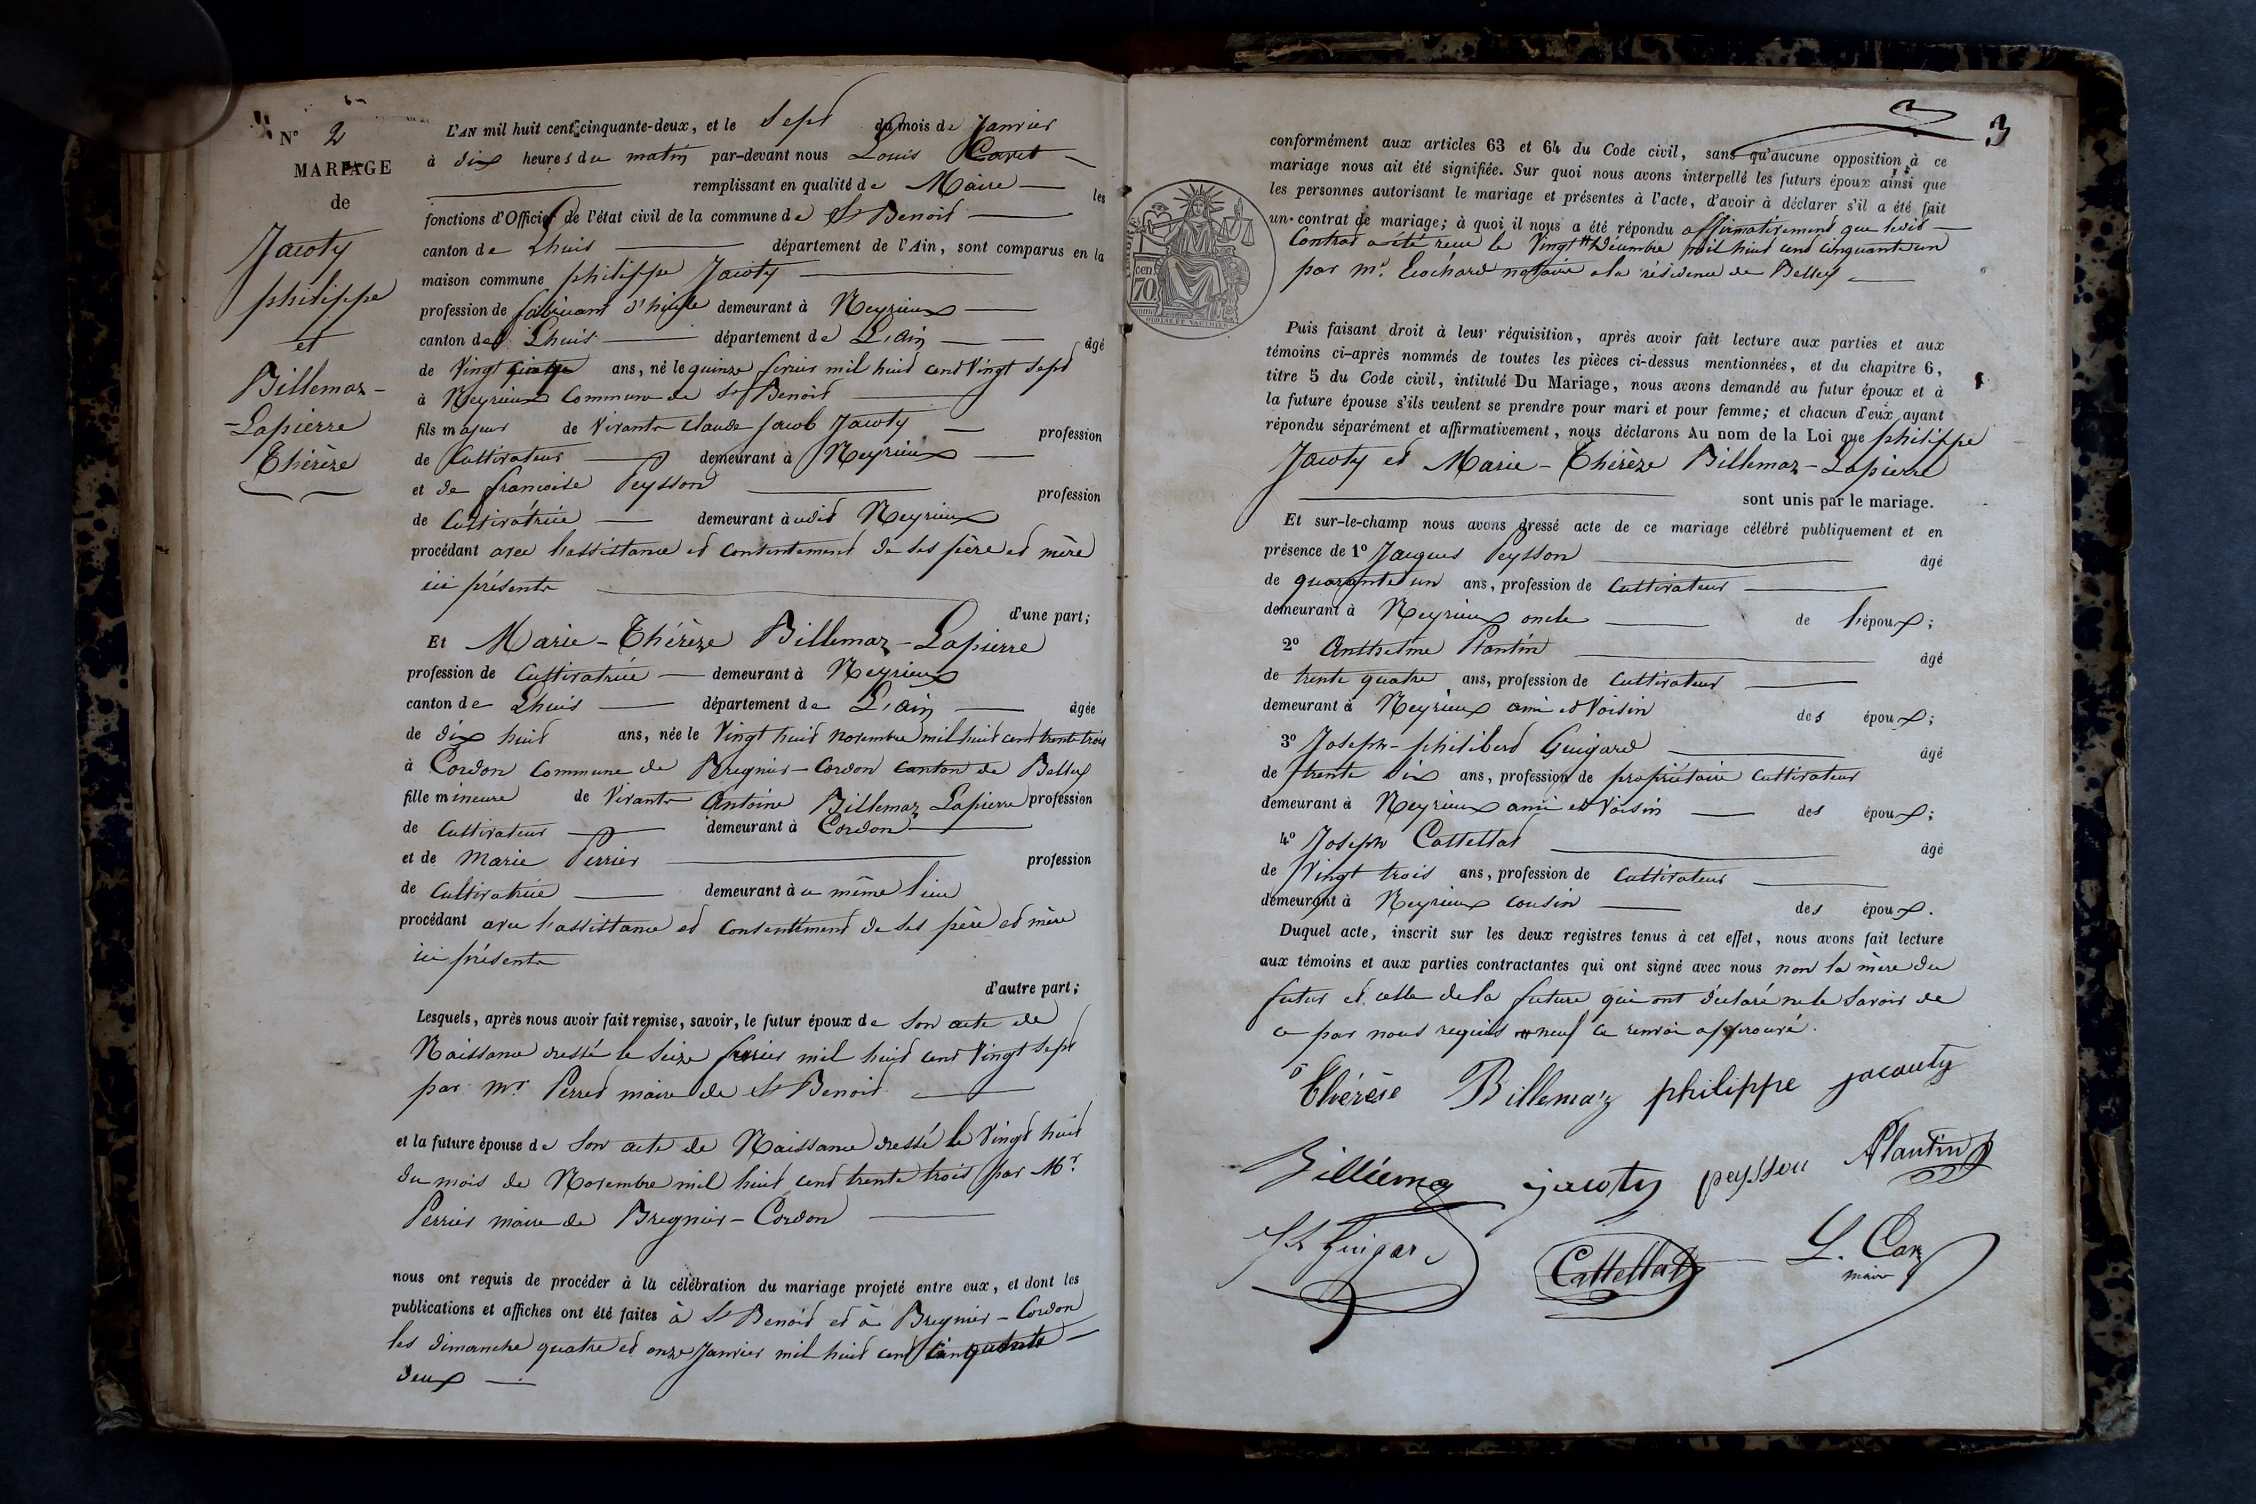 N° 2
MARIAGE
de
Jacoty
philippe
et
Billemaz-
-Lapierre
Thérèze
L'AN mil huit cent cinquante-deux, et le Sept du mois de Janvier
à dix heures du matin par-devant nous Louis Caret
remplissant en qualité de Maire les
fonctions d'Officier de l'état civil de la commune de St Benoit
canton de Lhuis département de l'Ain, sont comparus en la
maison commune philippe Jacoty
profession de fabricant d'huile demeurant à Neyrieux
canton de Lhuis département de L'ain âgé
de Vingt ans, né le quinze fevrier mil huit cent Vingt Sept
à Neyrieux Commune de St Benoit
fils majeur de Vivants Claude Jacob Jacoty profession
de Cultivateur demeurant à Neyrieux
et de francoise Peysson profession
de Cultivatrice demeurant à udit Neyrieux
procédant avec l'assistance et Consentement de ses père et mère
ici présents
d'une part;
Et Marie-Thérèze Billemaz-Lapierre
profession de Cultivatrice demeurant à Neyrieux
canton de Lhuis département de L'ain âgée
de dix huit ans, née le Vingt huit novembre mil huit cent trente trois
à Cordon Commune de Bregnier-Cordon canton de Belley
fille mineure de Vivants Antoine Billemaz Lapierre profession
de Cultivateur demeurant à Cordon
et de Marie Perrier profession
de Cultivatrice demeurant à ce même lieu
procédant avec l'assistance et Consentement de ses père et mère
ici présents
d'autre part;
Lesquels, après nous avoir fait remise, savoir, le futur époux de Son acte de
Naissance dressé le Seize fevrier mil huit cent Vingt Sept
par Mr Perret maire de St Benoit
et la future épouse de Son acte de Naissance dressé le Vingt huit
du mois de Novembre mil huit cent trente trois par Mr.
Perrier maire de Bregnier-Cordon
nous ont requis de procéder à la célébration du mariage projeté entre eux, et dont les
publications et affiches ont été faites à St Benoit et à Bregnier-Cordon
les dimanche quatre et onze Janvier mil huit cent Cinquante
deux
3
conformément aux articles 63 et 64 du Code civil, sans qu'aucune opposition à ce
mariage nous ait été signifiée. Sur quoi nous avons interpellé les futurs époux ainsi que
les personnes autorisant le mariage et présentes à l'acte, d'avoir à déclarer s'il a été fait
un contrat de mariage; à quoi il nous a été répondu affirmativement que ledit
Contrat a été reçu le Vingt # Décembre mil huit cent cinquante un
par Mr. notaire a la résidence de Belley
cen
70
Puis faisant droit à leur réquisition, après avoir fait lecture aux parties et aux
témoins ci-après nommés de toutes les pièces ci-dessus mentionnées, et du chapitre 6,
titre 5 du Code civil, intitulé Du Mariage, nous avons demandé au futur époux et à
la future épouse s'ils veulent se prendre pour mari et pour femme; et chacun d'eux ayant
répondu séparément et affirmativement, nous déclarons Au nom de la Loi que philippe
Jacoty et Marie-Thérèze Billemaz-Lapierre
sont unis par le mariage.
Et sur-le-champ nous avons dressé acte de ce mariage célébré publiquement et en
présence de 1° Jacques Peysson âgé
de quarante un ans, profession de Cultivateur
demeurant à Neyrieux oncle de l'époux;
2° Anthelme Plantin âgé
de trente quatre ans, profession de Cultivateur
demeurant à Neyrieux ami et Voisin des époux;
3° Joseph-philibert Guigard âgé
de trente Six ans, profession de propriétaire Cultivateur
demeurant à Neyrieux ami et Voisin des époux;
4° Joseph Cattellat âgé
de Vingt trois ans, profession de Cultivateur
demeurant à Neyrieux cousin des époux.
Duquel acte, inscrit sur les deux registres tenus à cet effet, nous avons fait lecture
aux témoins et aux parties contractantes qui ont signé avec nous non la mère du
futur et celle de la future qui ont déclaré ne le Savoir de
ce par nous requis # neuf ce renvoi approuvé.
Thérèse Billemaz philippe jacouty
Billiema jacoty peysson Plantin
Guigar Cattellat L. Car
maire